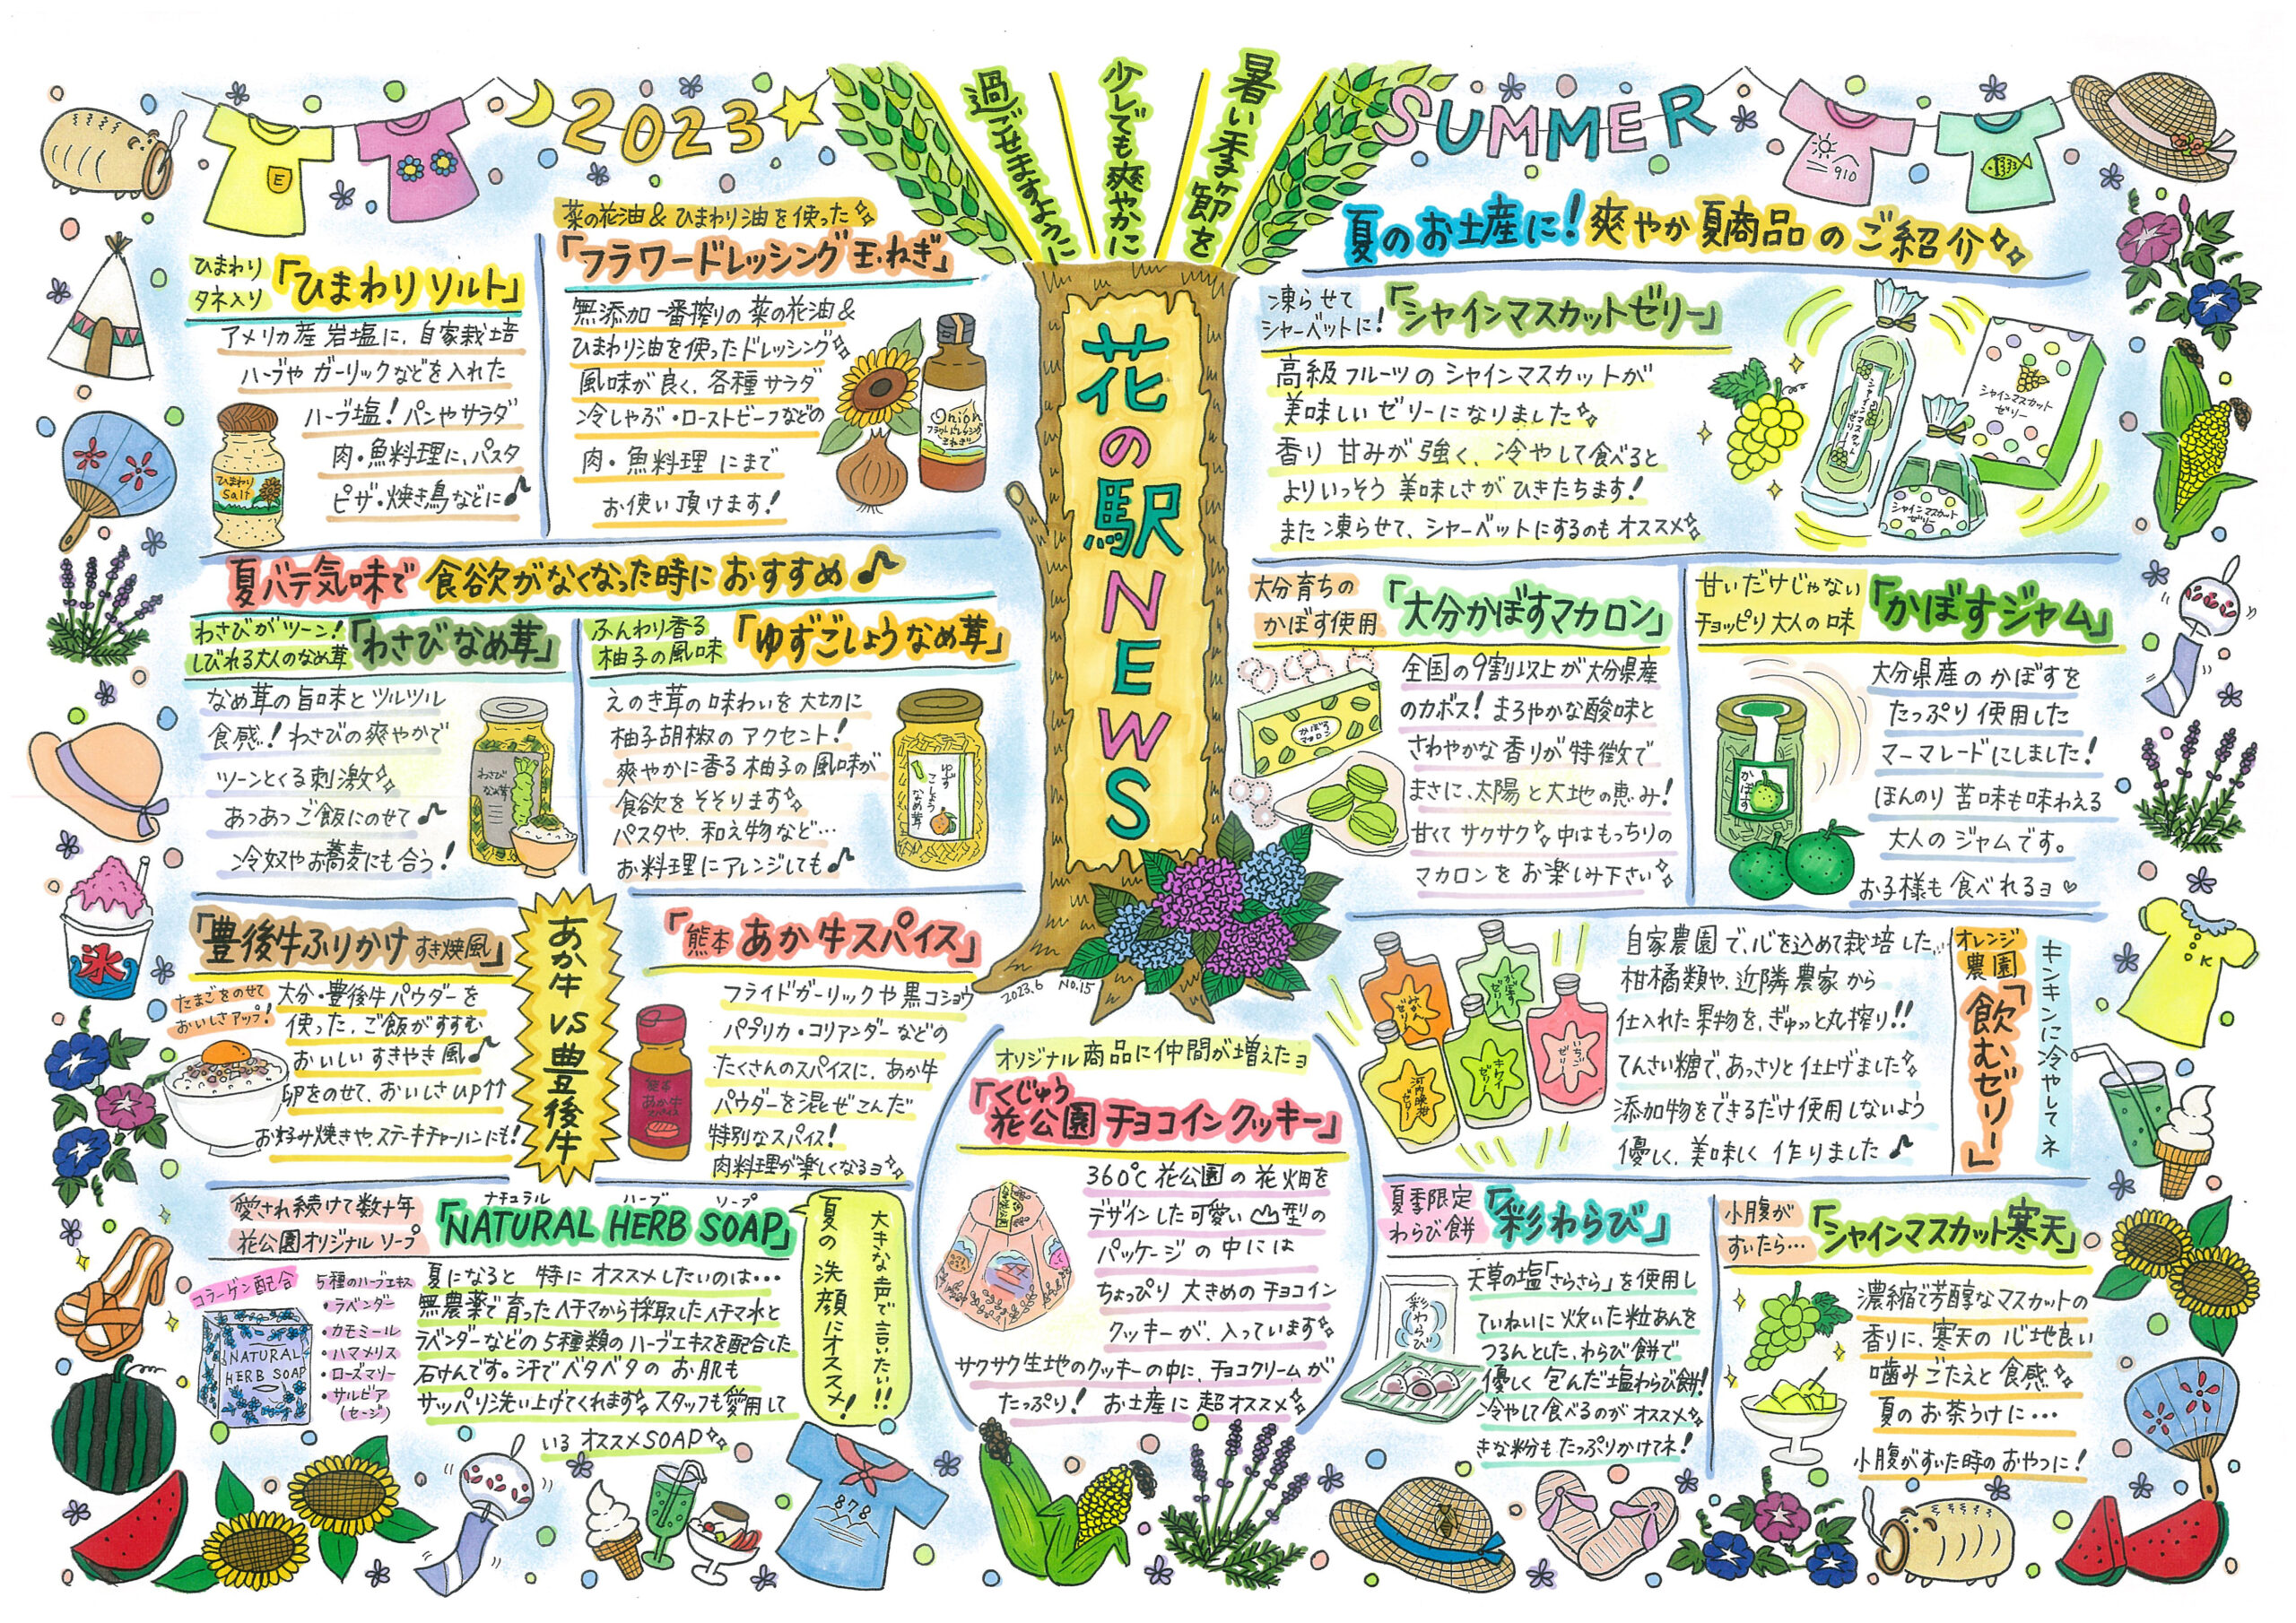 2023
SUMMER
暑い季節を
少しでも爽やかに
過ごせますように
花の駅NEWS
2023.6 NO.15
E
910
ひまわり
タネ入り
「ひまわりソルト」
アメリカ産岩塩に、自家栽培
ハーブやガーリックなどを入れた
ハーブ塩！パンやサラダ
肉・魚料理に、パスタ
ピザ・焼き鳥などに♪
ひまわり
Salt
菜の花油＆ひまわり油を使った
「フラワードレッシング玉ねぎ」
無添加一番搾りの菜の花油＆
ひまわり油を使ったドレッシング
風味が良く、各種サラダ
冷しゃぶ・ローストビーフなどの
肉・魚料理にまで
お使い頂けます！
Onion
フラワードレッシング
玉ねぎ
夏バテ気味で食欲がなくなった時におすすめ♪
わさびがツーン！
しびれる大人のなめ茸
「わさびなめ茸」
なめ茸の旨味とツルツル
食感！わさびの爽やかで
ツーンとくる刺激
あつあつご飯にのせて♪
冷奴やお蕎麦にも合う！
わさび
なめ茸
ふんわり香る
柚子の風味
「ゆずごしょうなめ茸」
えのき茸の味わいを大切に
柚子胡椒のアクセント！
爽やかに香る柚子の風味が
食欲をそそります
パスタや、和え物など…
お料理にアレンジしても♪
ゆず
こしょう
なめ茸
「豊後牛ふりかけすき焼風」
たまごをのせて
おいしさアップ！
大分・豊後牛パウダーを
使った、ご飯がすすむ
おいしいすきやき風♪
卵をのせて、おいしさUP↑↑
お好み焼きや、ステーキチャーハンにも！
あか牛VS豊後牛
「熊本あか牛スパイス」
フライドガーリックや黒コショウ
パプリカ・コリアンダーなどの
たくさんのスパイスに、あか牛
パウダーを混ぜこんだ
特別なスパイス！
肉料理が楽しくなるヨ
熊本
あか牛
スパイス
愛され続けて数十年
花公園オリジナルソープ
ナチュラル ハーブ ソープ
「NATURAL HERB SOAP」
コラーゲン配合
5種のハーブエキス
・ラベンダー
・カモミール
・ハマメリス
・ローズマリー
・サルビア
（セージ）
NATURAL
HERB SOAP
夏になると特にオススメしたいのは…
無農薬で育ったヘチマから採取したヘチマ水と
ラベンダーなどの5種類のハーブエキスを配合した
石けんです。汗でベタベタのお肌も
サッパリ洗い上げてくれます スタッフも愛用して
いるオススメSOAP
大きな声で言いたい!!
夏の洗顔にオススメ！
878
オリジナル商品に仲間が増えたヨ
「くじゅう
花公園チョコインクッキー」
360℃花公園の花畑を
デザインした可愛い山型の
パッケージの中には
ちょっぴり大きめのチョコイン
クッキーが、入っています
サクサク生地のクッキーの中に、チョコクリームが
たっぷり！お土産に超オススメ
夏のお土産に！爽やか夏商品のご紹介
凍らせて
シャーベットに！
「シャインマスカットゼリー」
高級フルーツのシャインマスカットが
美味しいゼリーになりました
香り甘みが強く、冷やして食べると
よりいっそう美味しさがひきたちます！
また凍らせて、シャーベットにするのもオススメ
シャインマスカット
ゼリー
シャインマスカット
ゼリー
シャインマスカット
ゼリー
大分育ちの
かぼす使用
「大分かぼすマカロン」
全国の9割以上が大分県産
のカボス！まろやかな酸味と
さわやかな香りが特徴で
まさに、太陽と大地の恵み！
甘くてサクサク 中はもっちりの
マカロンをお楽しみ下さい
かぼす
マカロン
甘いだけじゃない
チョッピリ大人の味
「かぼすジャム」
大分県産のかぼすを
たっぷり使用した
マーマレードにしました！
ほんのり苦味も味わえる
大人のジャムです。
お子様も食べれるヨ♡
かぼす
キンキンに冷やしてネ
オレンジ
農園
「飲むゼリー」
自家農園で、心を込めて栽培した、
柑橘類や、近隣農家から
仕入れた果物を、ぎゅっと丸搾り!!
てんさい糖で、あっさりと仕上げました
添加物をできるだけ使用しないよう
優しく、美味しく作りました♪
みかん
ゼリー
かぼす
ゼリー
河内晩柑
ゼリー
キウイ
ゼリー
いちご
ゼリー
夏季限定
わらび餅
「彩わらび」
天草の塩「さらさら」を使用し
ていねいに炊いた粒あんを
つるんとした、わらび餅で
優しく包んだ塩わらび餅！
冷やして食べるのがオススメ
きな粉もたっぷりかけてネ！
彩わらび
小腹が
すいたら…
「シャインマスカット寒天」
濃縮で芳醇なマスカットの
香りに、寒天の心地良い
噛みごたえと食感
夏のお茶うけに…
小腹がすいた時のおやつに！
氷
K